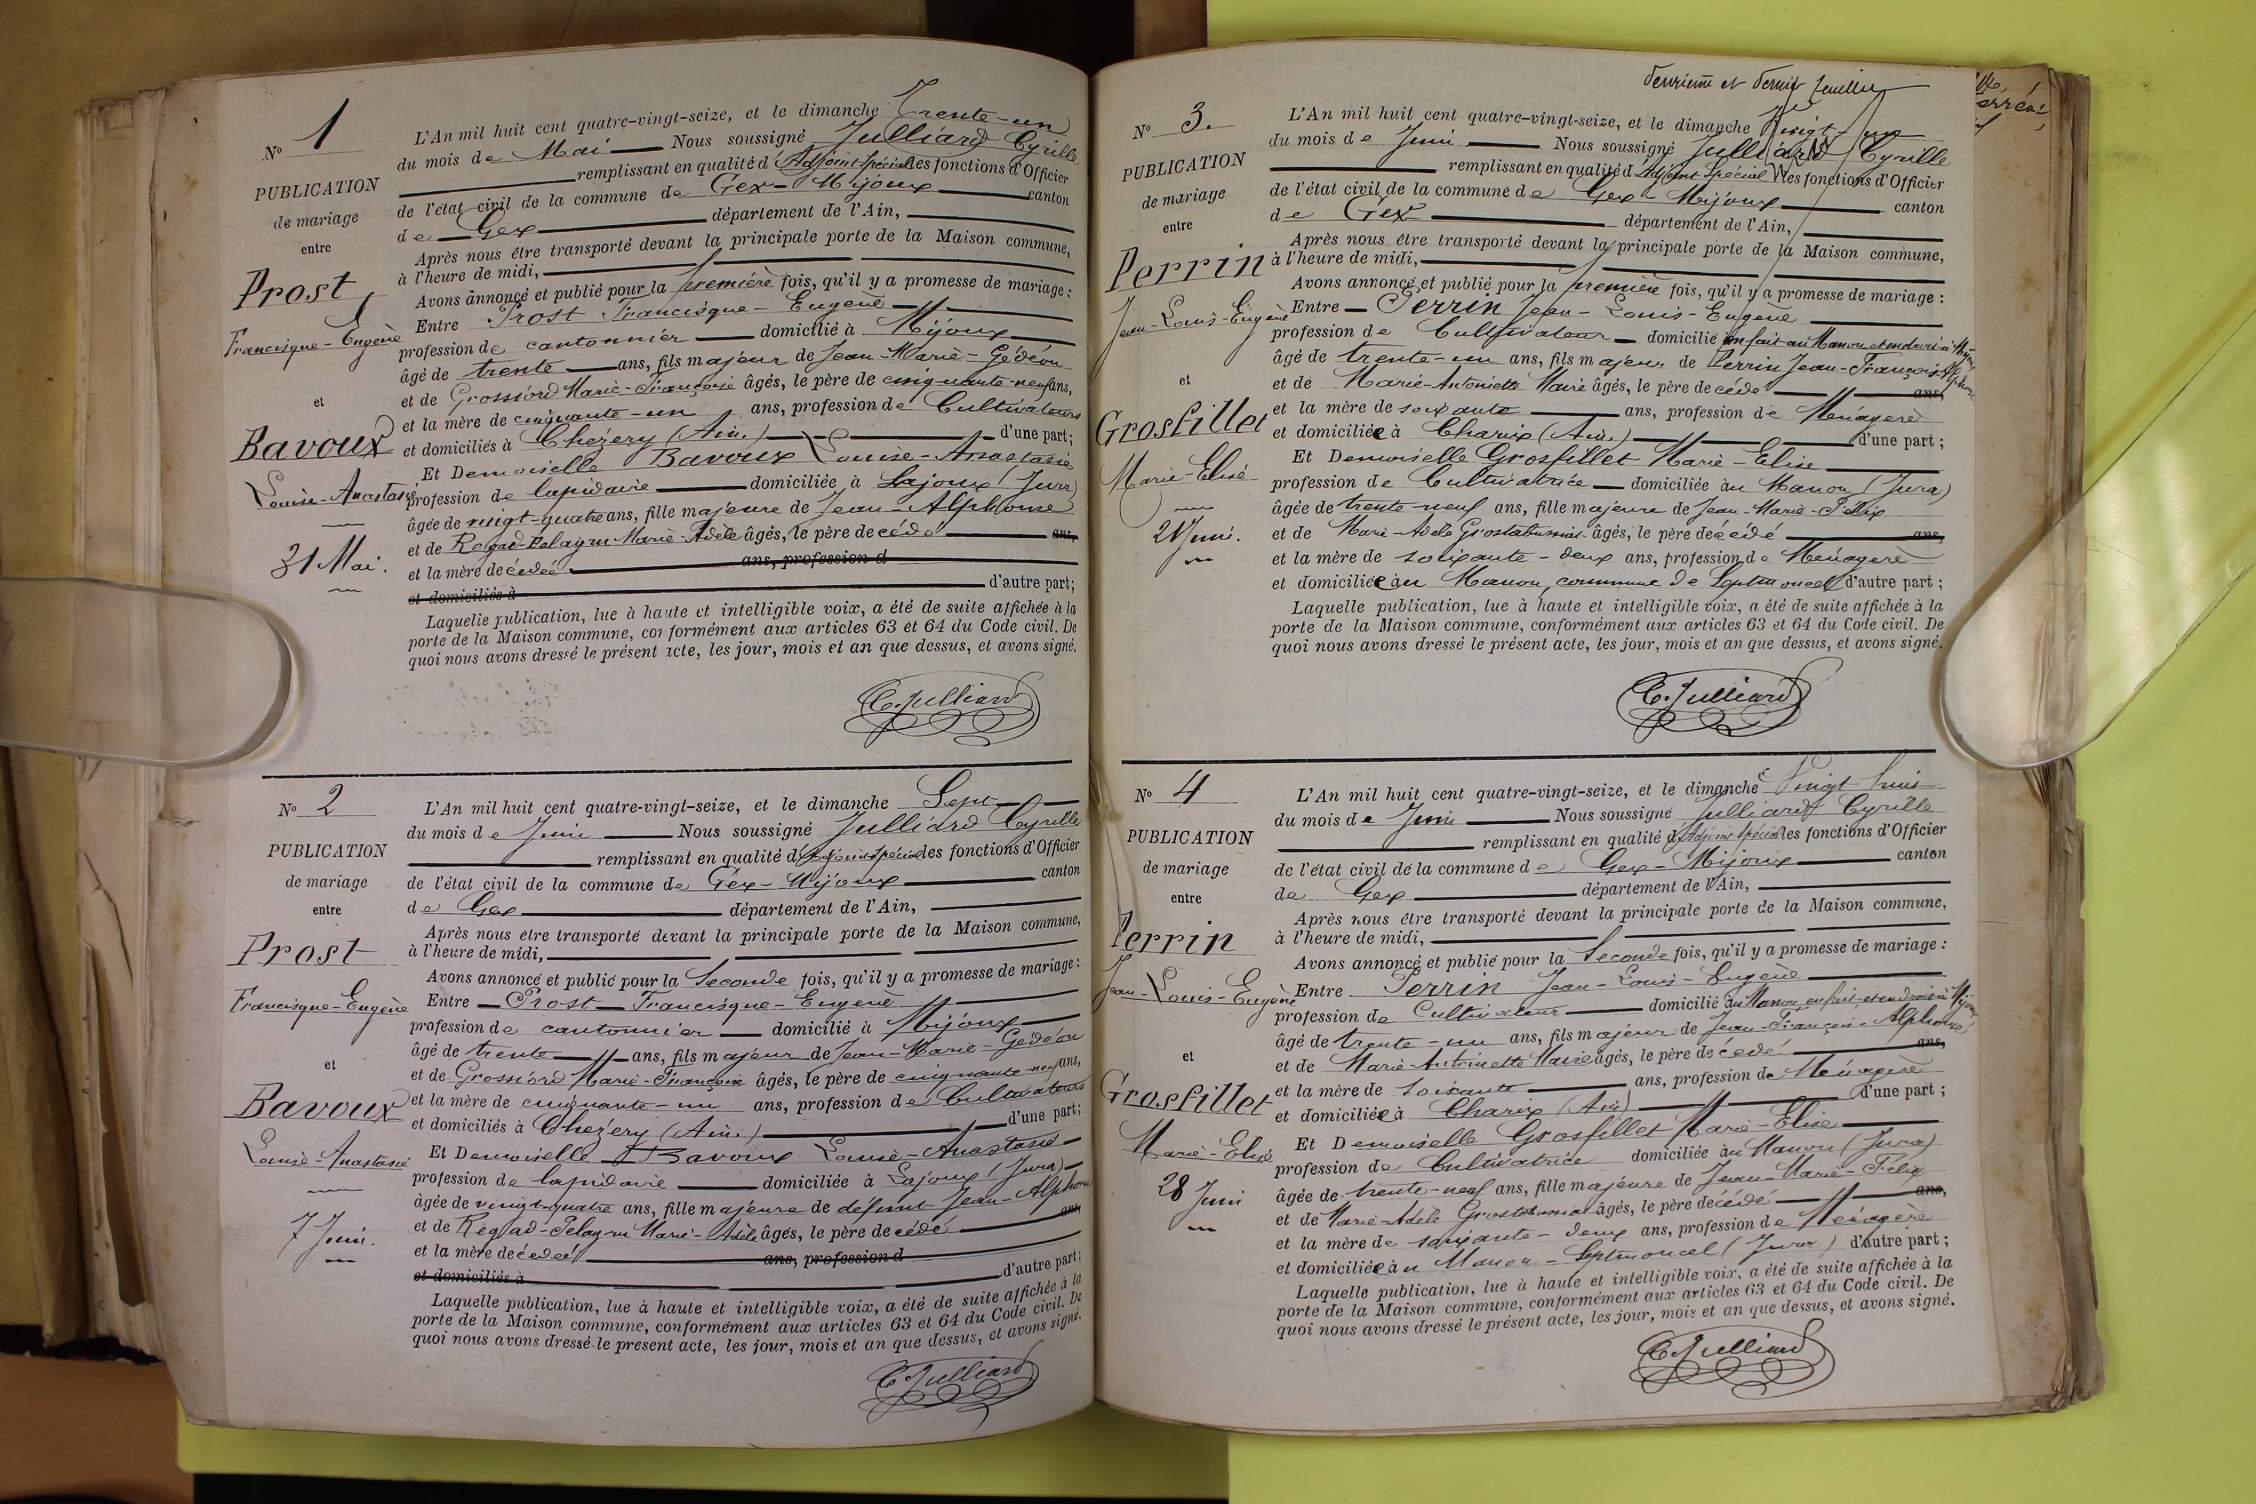 N° 1
PUBLICATION
de mariage
entre
Prost
Francisque-Eugène
et
Bavoux
Louise-Anastasie
31 Mai.
L'An mil huit cent quatre-vingt-seize, et le dimanche Trente-un
du mois de Mai Nous soussigné Julliard Cyrille
remplissant en qualité d'Adjoint spécial les fonctions d'Officier
de l'état civil de la commune de Gex-Mijoux canton
de Gex département de l'Ain,
Après nous être transporté devant la principale porte de la Maison commune,
à l'heure de midi,
Avons annoncé et publié pour la première fois, qu'il y a promesse de mariage :
Entre Prost Francisque-Eugène
profession de cantonnier domicilié à Mijoux
âgé de trente ans, fils majeur de Jean-Marie-Gédéon
et de Grossiord Marie-Françoise âgés, le père de cinquante-neuf ans,
et la mère de cinquante-un ans, profession de Cultivateurs
et domiciliés à Chézery (Ain.) d'une part;
Et Demoiselle Bavoux Louise-Anastasie
profession de lapidaire domiciliée à Lajoux (Jura)
âgée de vingt-quatre ans, fille majeure de Jean-Alphonse
et de Regad-Pelagru Marie-Adèle âgés, le père décédé ans,
et la mère décédée ans, profession d
et domiciliés à d'autre part;
Laquelle publication, lue à haute et intelligible voix, a été de suite affichée à la
porte de la Maison commune, conformément aux articles 63 et 64 du Code civil. De
quoi nous avons dressé le présent acte, les jour, mois et an que dessus, et avons signé.
C. Julliard
N° 2
PUBLICATION
de mariage
entre
Prost
Francisque-Eugène
et
Bavoux
Louise-Anastasie
7 Juin.
L'An mil huit cent quatre-vingt-seize, et le dimanche Sept
du mois de Juin Nous soussigné Julliard Cyrille
remplissant en qualité d'Adjoint spécial les fonctions d'Officier
de l'état civil de la commune de Gex-Mijoux canton
de Gex département de l'Ain,
Après nous être transporté devant la principale porte de la Maison commune,
à l'heure de midi,
Avons annoncé et publié pour la Seconde fois, qu'il y a promesse de mariage :
Entre Prost Francisque-Eugène
profession de cantonnier domicilié à Mijoux
âgé de trente ans, fils majeur de Jean-Marie-Gédéon
et de Grossiord Marie-Françoise âgés, le père de cinquante-neuf ans,
et la mère de cinquante-un ans, profession de Cultivateurs
et domiciliés à Chézery (Ain.) d'une part;
Et Demoiselle Bavoux Louise-Anastasie
profession de lapidaire domiciliée à Lajoux (Jura)
âgée de vingt-quatre ans, fille majeure de défunt Jean-Alphonse
et de Regad-Pelagru Marie-Adèle âgés, le père décédé ans,
et la mère décédée ans, profession d
et domiciliés à d'autre part;
Laquelle publication, lue à haute et intelligible voix, a été de suite affichée à la
porte de la Maison commune, conformément aux articles 63 et 64 du Code civil. De
quoi nous avons dressé le présent acte, les jour, mois et an que dessus, et avons signé.
C. Julliard
deuxième et dernier feuillet
N° 3.
PUBLICATION
de mariage
entre
Perrin
Jean-Louis-Eugène
et
Grosfillet
Marie-Elise
21 Juin.
L'An mil huit cent quatre-vingt-seize, et le dimanche Vingt-un
du mois de Juin Nous soussigné Julliard Cyrille
remplissant en qualité d'Adjoint spécial les fonctions d'Officier
de l'état civil de la commune de Gex-Mijoux canton
de Gex département de l'Ain,
Après nous être transporté devant la principale porte de la Maison commune,
à l'heure de midi,
Avons annoncé et publié pour la première fois, qu'il y a promesse de mariage :
Entre Perrin Jean-Louis-Eugène
profession de Cultivateur domicilié en fait au Manon et en droit à Mijoux
âgé de trente-un ans, fils majeur de Perrin Jean-François Alphonse
et de Marie-Antoinette Maire âgés, le père décédé ans,
et la mère de soixante ans, profession de Ménagère
et domiciliée à Charix (Ain.) d'une part ;
Et Demoiselle Grosfillet Marie-Elise
profession de Cultivatrice domiciliée au Manon (Jura)
âgée de trente-neuf ans, fille majeure de Jean-Marie-Félix
et de Marie-Adèle âgés, le père décédé ans,
et la mère de soixante-deux ans, profession de Ménagère
et domiciliée au Manon, commune de Septmoncel d'autre part ;
Laquelle publication, lue à haute et intelligible voix, a été de suite affichée à la
porte de la Maison commune, conformément aux articles 63 et 64 du Code civil. De
quoi nous avons dressé le présent acte, les jour, mois et an que dessus, et avons signé.
C. Julliard
N° 4
PUBLICATION
de mariage
entre
Perrin
Jean-Louis-Eugène
et
Grosfillet
Marie-Elise
28 Juin
L'An mil huit cent quatre-vingt-seize, et le dimanche Vingt-huit
du mois de Juin Nous soussigné Julliard Cyrille
remplissant en qualité d'Adjoint spécial les fonctions d'Officier
de l'état civil de la commune de Gex-Mijoux canton
de Gex département de l'Ain,
Après nous être transporté devant la principale porte de la Maison commune,
à l'heure de midi,
Avons annoncé et publié pour la Seconde fois, qu'il y a promesse de mariage :
Entre Perrin Jean-Louis-Eugène
profession de Cultivateur domicilié au Manon en fait et en droit à Mijoux
âgé de trente-un ans, fils majeur de Jean-François-Alphonse
et de Marie-Antoinette Maire âgés, le père décédé ans,
et la mère de soixante ans, profession de Ménagère
et domiciliée à Charix (Ain) d'une part ;
Et Demoiselle Grosfillet Marie-Elise
profession de Cultivatrice domiciliée au Manon (Jura)
âgée de trente-neuf ans, fille majeure de Jean-Marie-Félix
et de Marie-Adèle âgés, le père décédé ans,
et la mère de soixante-deux ans, profession de Ménagère
et domiciliée au Manon-Septmoncel (Jura) d'autre part ;
Laquelle publication, lue à haute et intelligible voix, a été de suite affichée à la
porte de la Maison commune, conformément aux articles 63 et 64 du Code civil. De
quoi nous avons dressé le présent acte, les jour, mois et an que dessus, et avons signé.
C. Julliard